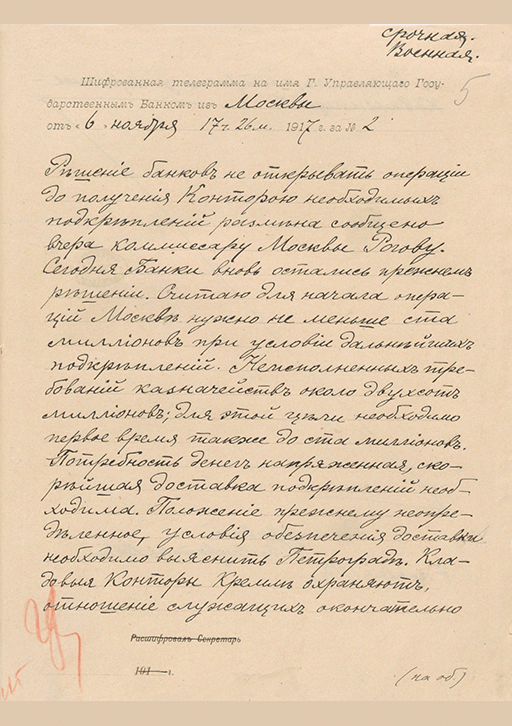 срочная.
Военная.
5
Шифрованная телеграмма на имя Г. Управляющаго Госу-
дарственнымъ Банкомъ изъ Москвы
отъ „6„ ноября 17 ч. 26 м. 1917 г. за № 2
Рѣшеніе банковъ не открывать операціи
до полученія Конторою необходимыхъ
подкрѣпленій размѣна сообщено
вчера коммиссару Москвы Рогову.
Сегодня Банки вновь остались прежнемъ
рѣшеніи. Считаю для начала опера-
цій Москвѣ нужно не меньше ста
милліоновъ при условіи дальнѣйшихъ
подкрѣпленій. Неисполненныхъ тре-
бованій казначействъ около двухсотъ
милліоновъ; для этой цѣли необходимо
первое время также до ста милліоновъ.
Потребность денег напряженная, ско-
рѣйшая доставка подкрѣпленій необ-
ходима. Положеніе прежнему неопре-
дѣленное, условія обезпеченія доставки
необходимо выяснить Петроградѣ. Кла-
довыя Конторы Кремлѣ охраняютъ,
отношеніе служащихъ окончательно
Расшифровалъ Секретарь
191 г.
(на об)